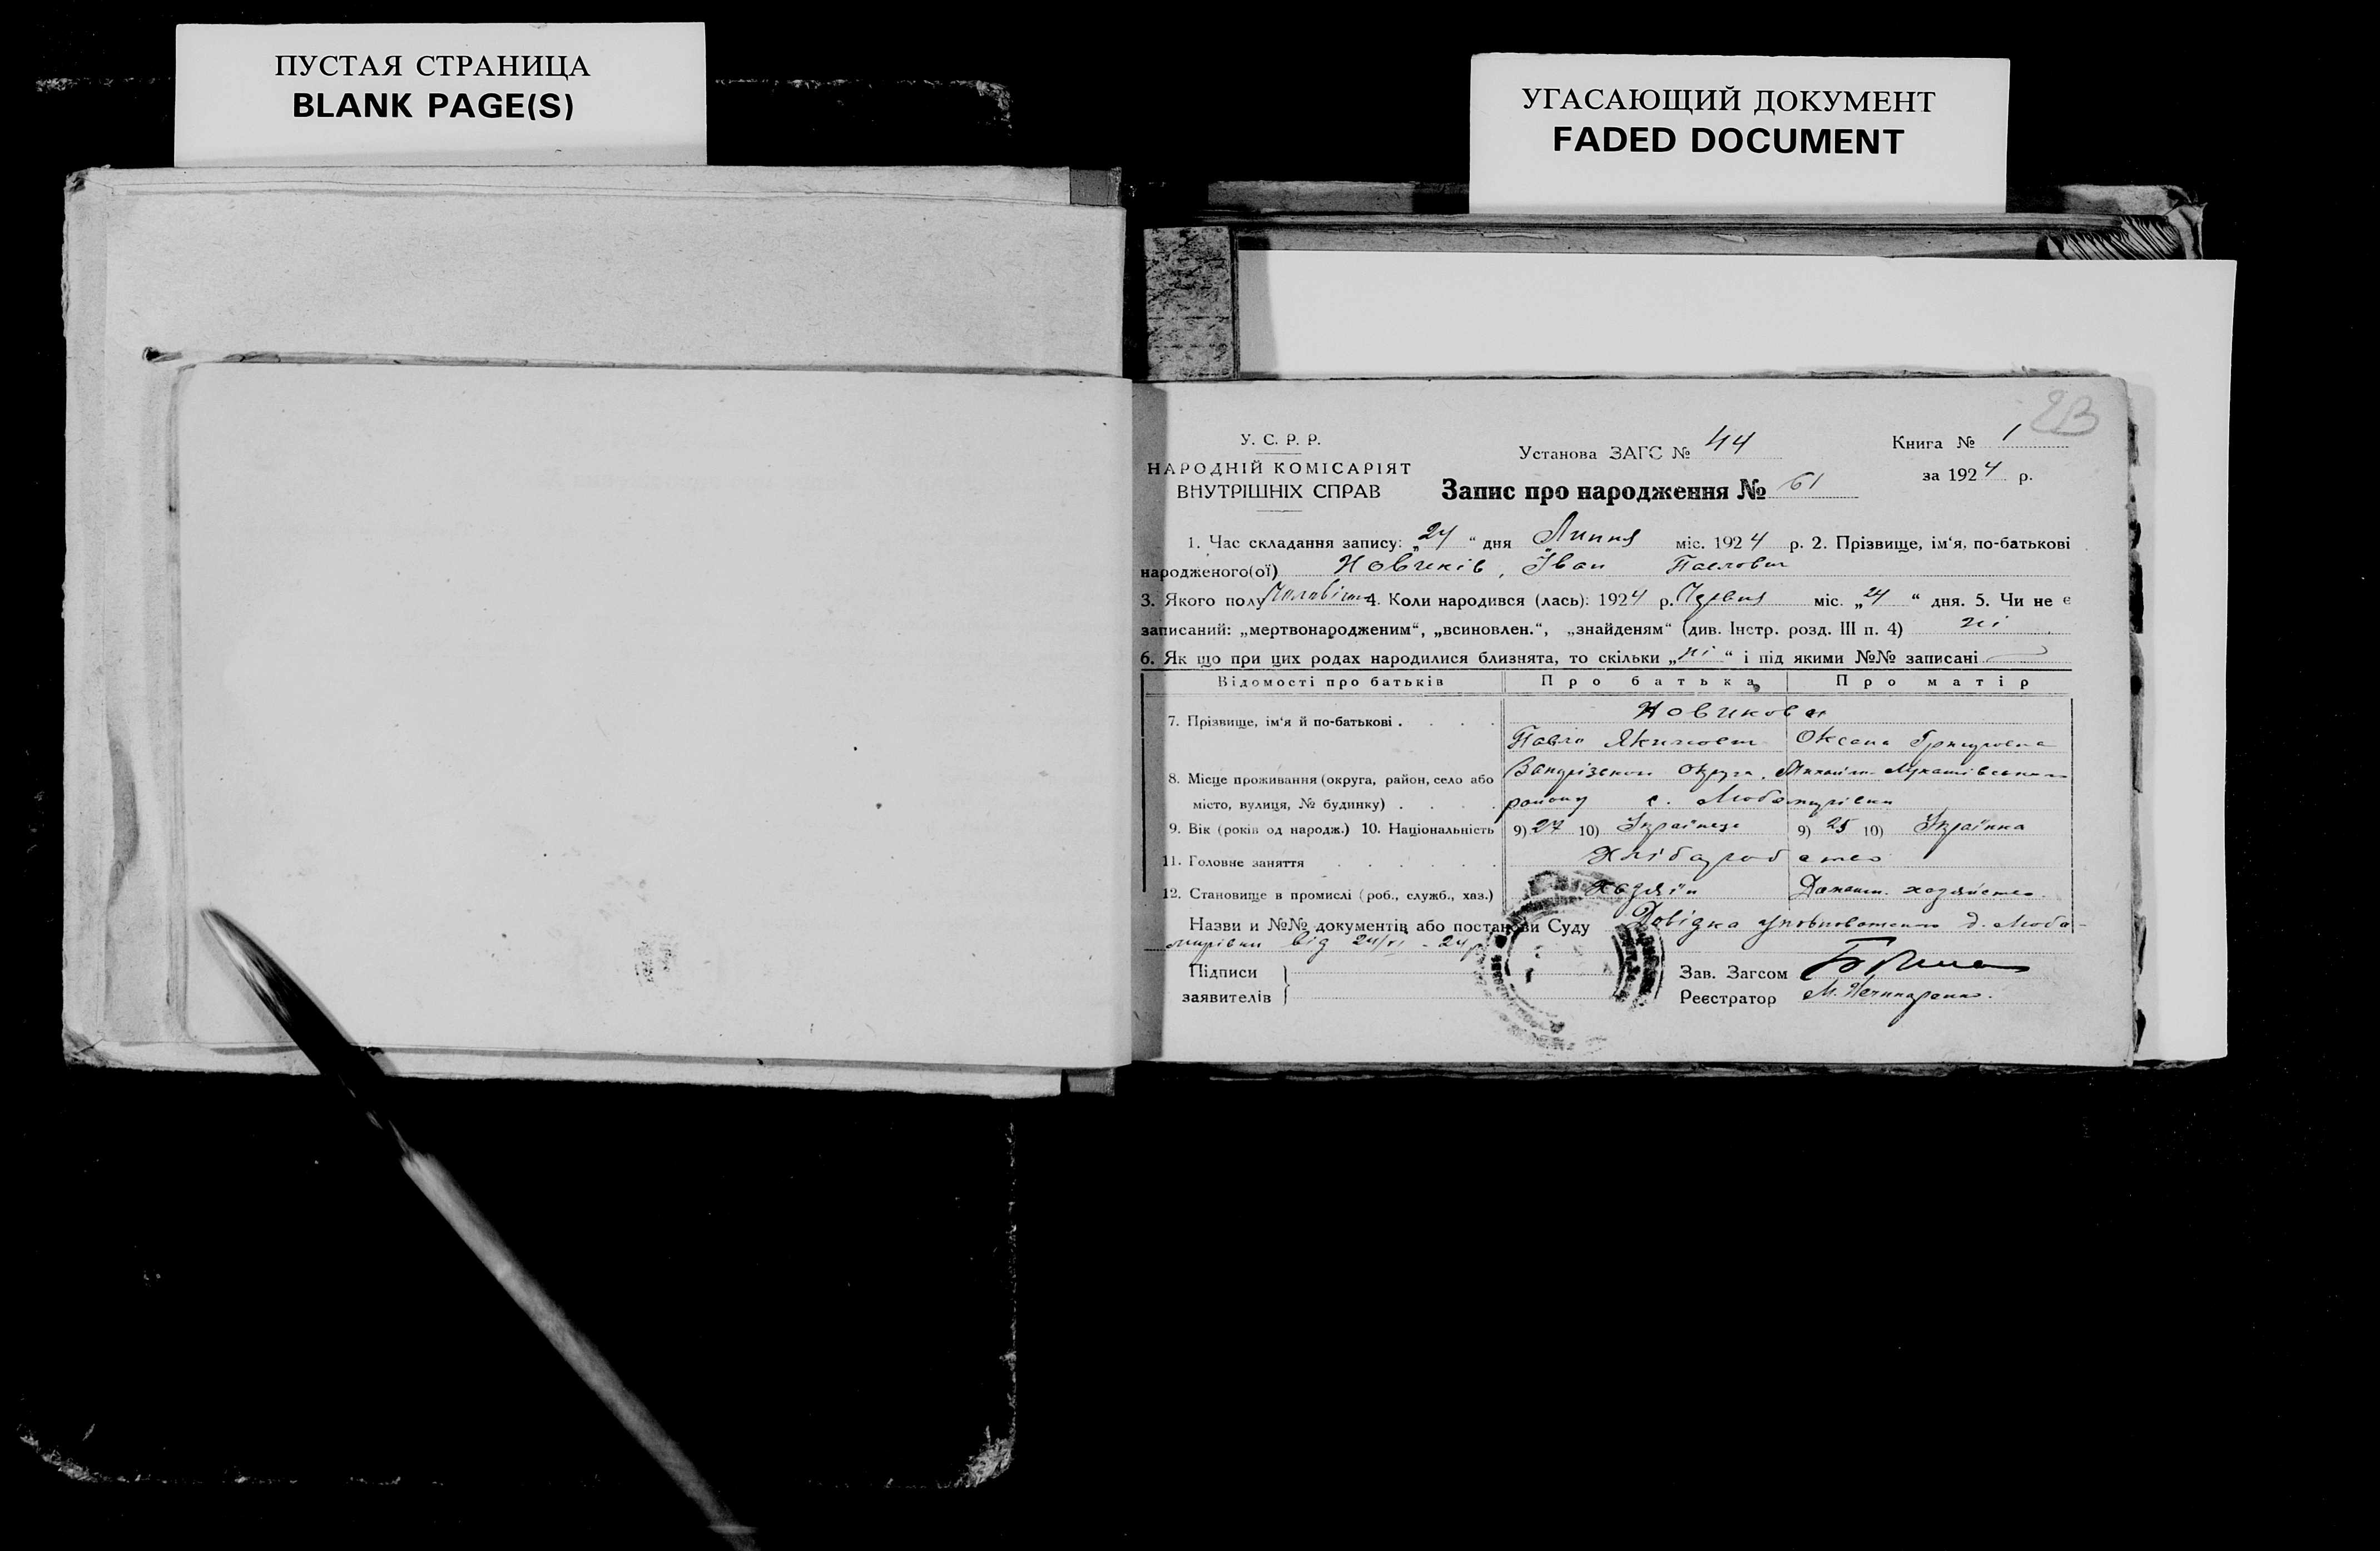 ПУСТАЯ СТРАНИЦА
BLANK PAGE(S)
УГАСАЮЩИЙ ДОКУМЕНТ
FADED DOCUMENT
У. С. Р. Р.
НАРОДНІЙ КОМІСАРІЯТ
ВНУТРІШНІХ СПРАВ
Установа ЗАГС № 44
Запис про народження № 61
Книга № 1
за 1924 р.
1. Час складання запису: „24“ дня Липня міс. 1924 р. 2. Прізвище, ім‘я, по-батькові
народженого(ої) Новиків, Іван Павлович
3. Якого полу 4. Коли народився (лась): 1924 р. Червня міс. „24“ дня. 5. Чи не є
записаний: „мертвонародженим“, „всиновлен.“, „знайденям“ (див. Інстр. розд. III п. 4) ні
6. Як що при цих родах народилися близнята, то скільки „ні“ і під якими №№ записані
Відомості про батьків Про батька Про матір
7. Прізвище, ім‘я й по-батькові . Новикови
Павло Якимович Оксана Григоровна
8. Місце проживання (округа, район, село або Округи,
місто, вулиця, № будинку) . району с.
9. Вік (років од народж.) 10. Національність 9) 27 10) Українець 9) 25 10) Українка
11. Головне заняття Хлібаробство
12. Становище в промислі (роб., служб., хаз.) Хазяїн Домашн. хазяйство
Назви и №№ документів або постанови Суду Довідка
від 24/VI - 24 р
Підписи
заявителів
Зав. Загсом
Реєстратор М.